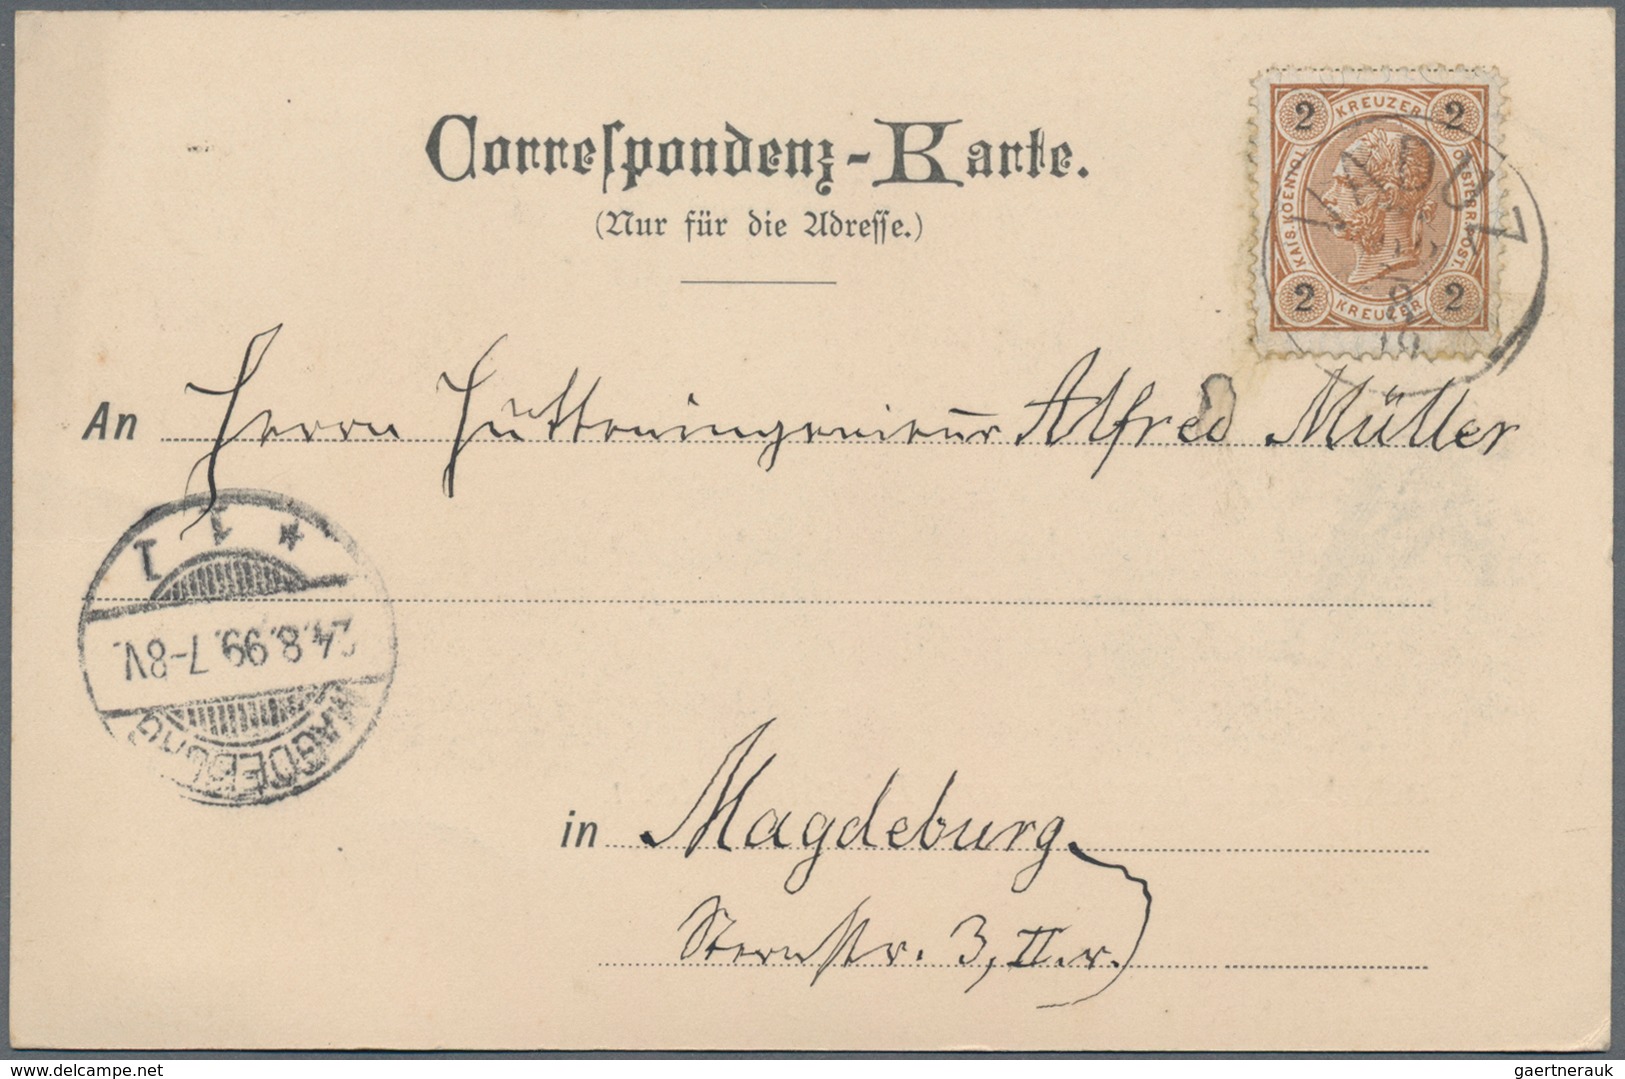 Correſpondenz-Karte.
(Nur für die Adreſſe.)
2 KREUZER 2
KAIS. KOENIGL. OESTERR. POST.
2 KREUZER 2
VADUZ
An Herrn Hütteningenieur Alfred Müller
1 1 *
24.8.99. 7-8V.
MAGDEBURG
in Magdeburg
Sternstr. 3, II. r.
www.delcampe.net
gaertnerauk